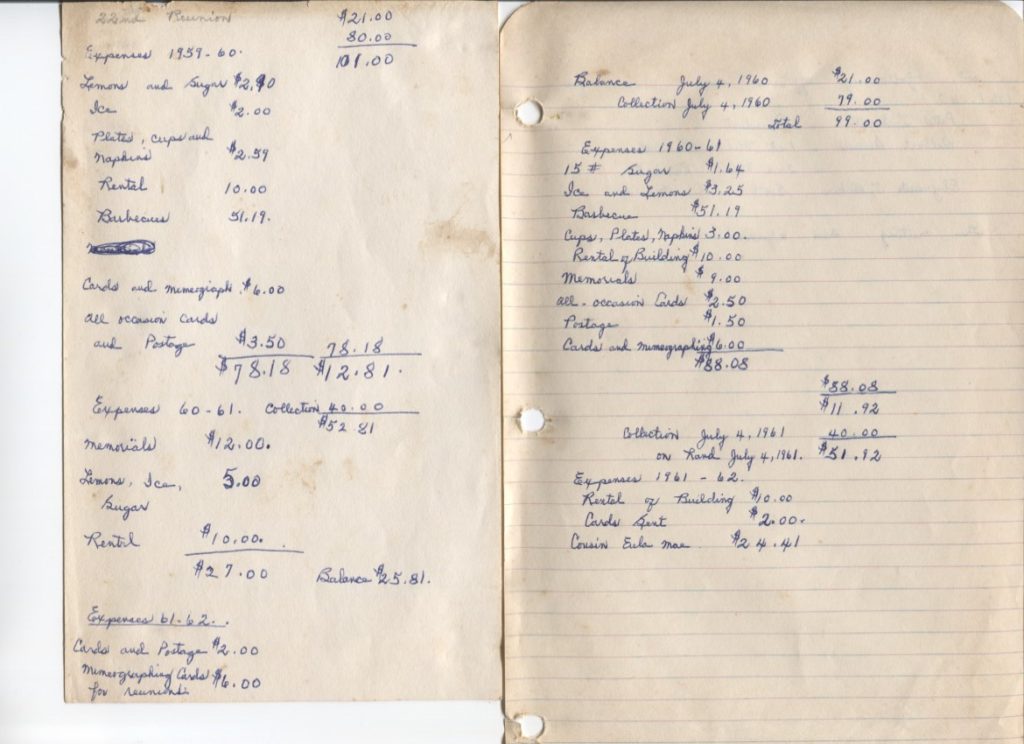 22nd Reunion $21.00
80.00
Expenses 1959-60. 101.00
Lemons and Sugar $2.90
Ice $2.00
Plates, cups and
Napkins $2.59
Rental 10.00
Barbecues 51.19.
Cards and mimeograph. $6.00
All occasion Cards
and Postage $3.50 78.18
$78.18 $12.81.
Expenses 60-61. Collection 40.00
$52.81
Memorials $12.00.
Lemons, Ice, 5.00
Sugar
Rentil $10.00.
$27.00 Balance $25.81.
Expenses 61-62..
Cards and Postage $2.00
Mimeographing Cards $6.00
for reunions
Balance July 4, 1960 $21.00
Collection July 4, 1960 79.00
Total 99.00
Expenses 1960-61
15# Sugar $1.64
Ice and Lemons $3.25
Barbecue $51.19
Cups, Plates, Napkins 3.00.
Rental of Building $10.00
Memorials $9.00
All-occasion Cards $2.50
Postage $1.50
Cards and mimeographing $6.00
$88.08
$88.08
$11.92
Collection July 4, 1961 40.00
on Hand July 4, 1961. $51.92
Expenses 1961-62.
Rental of Building $10.00
Cards Sent $2.00.
Cousin Eula Mae $24.41